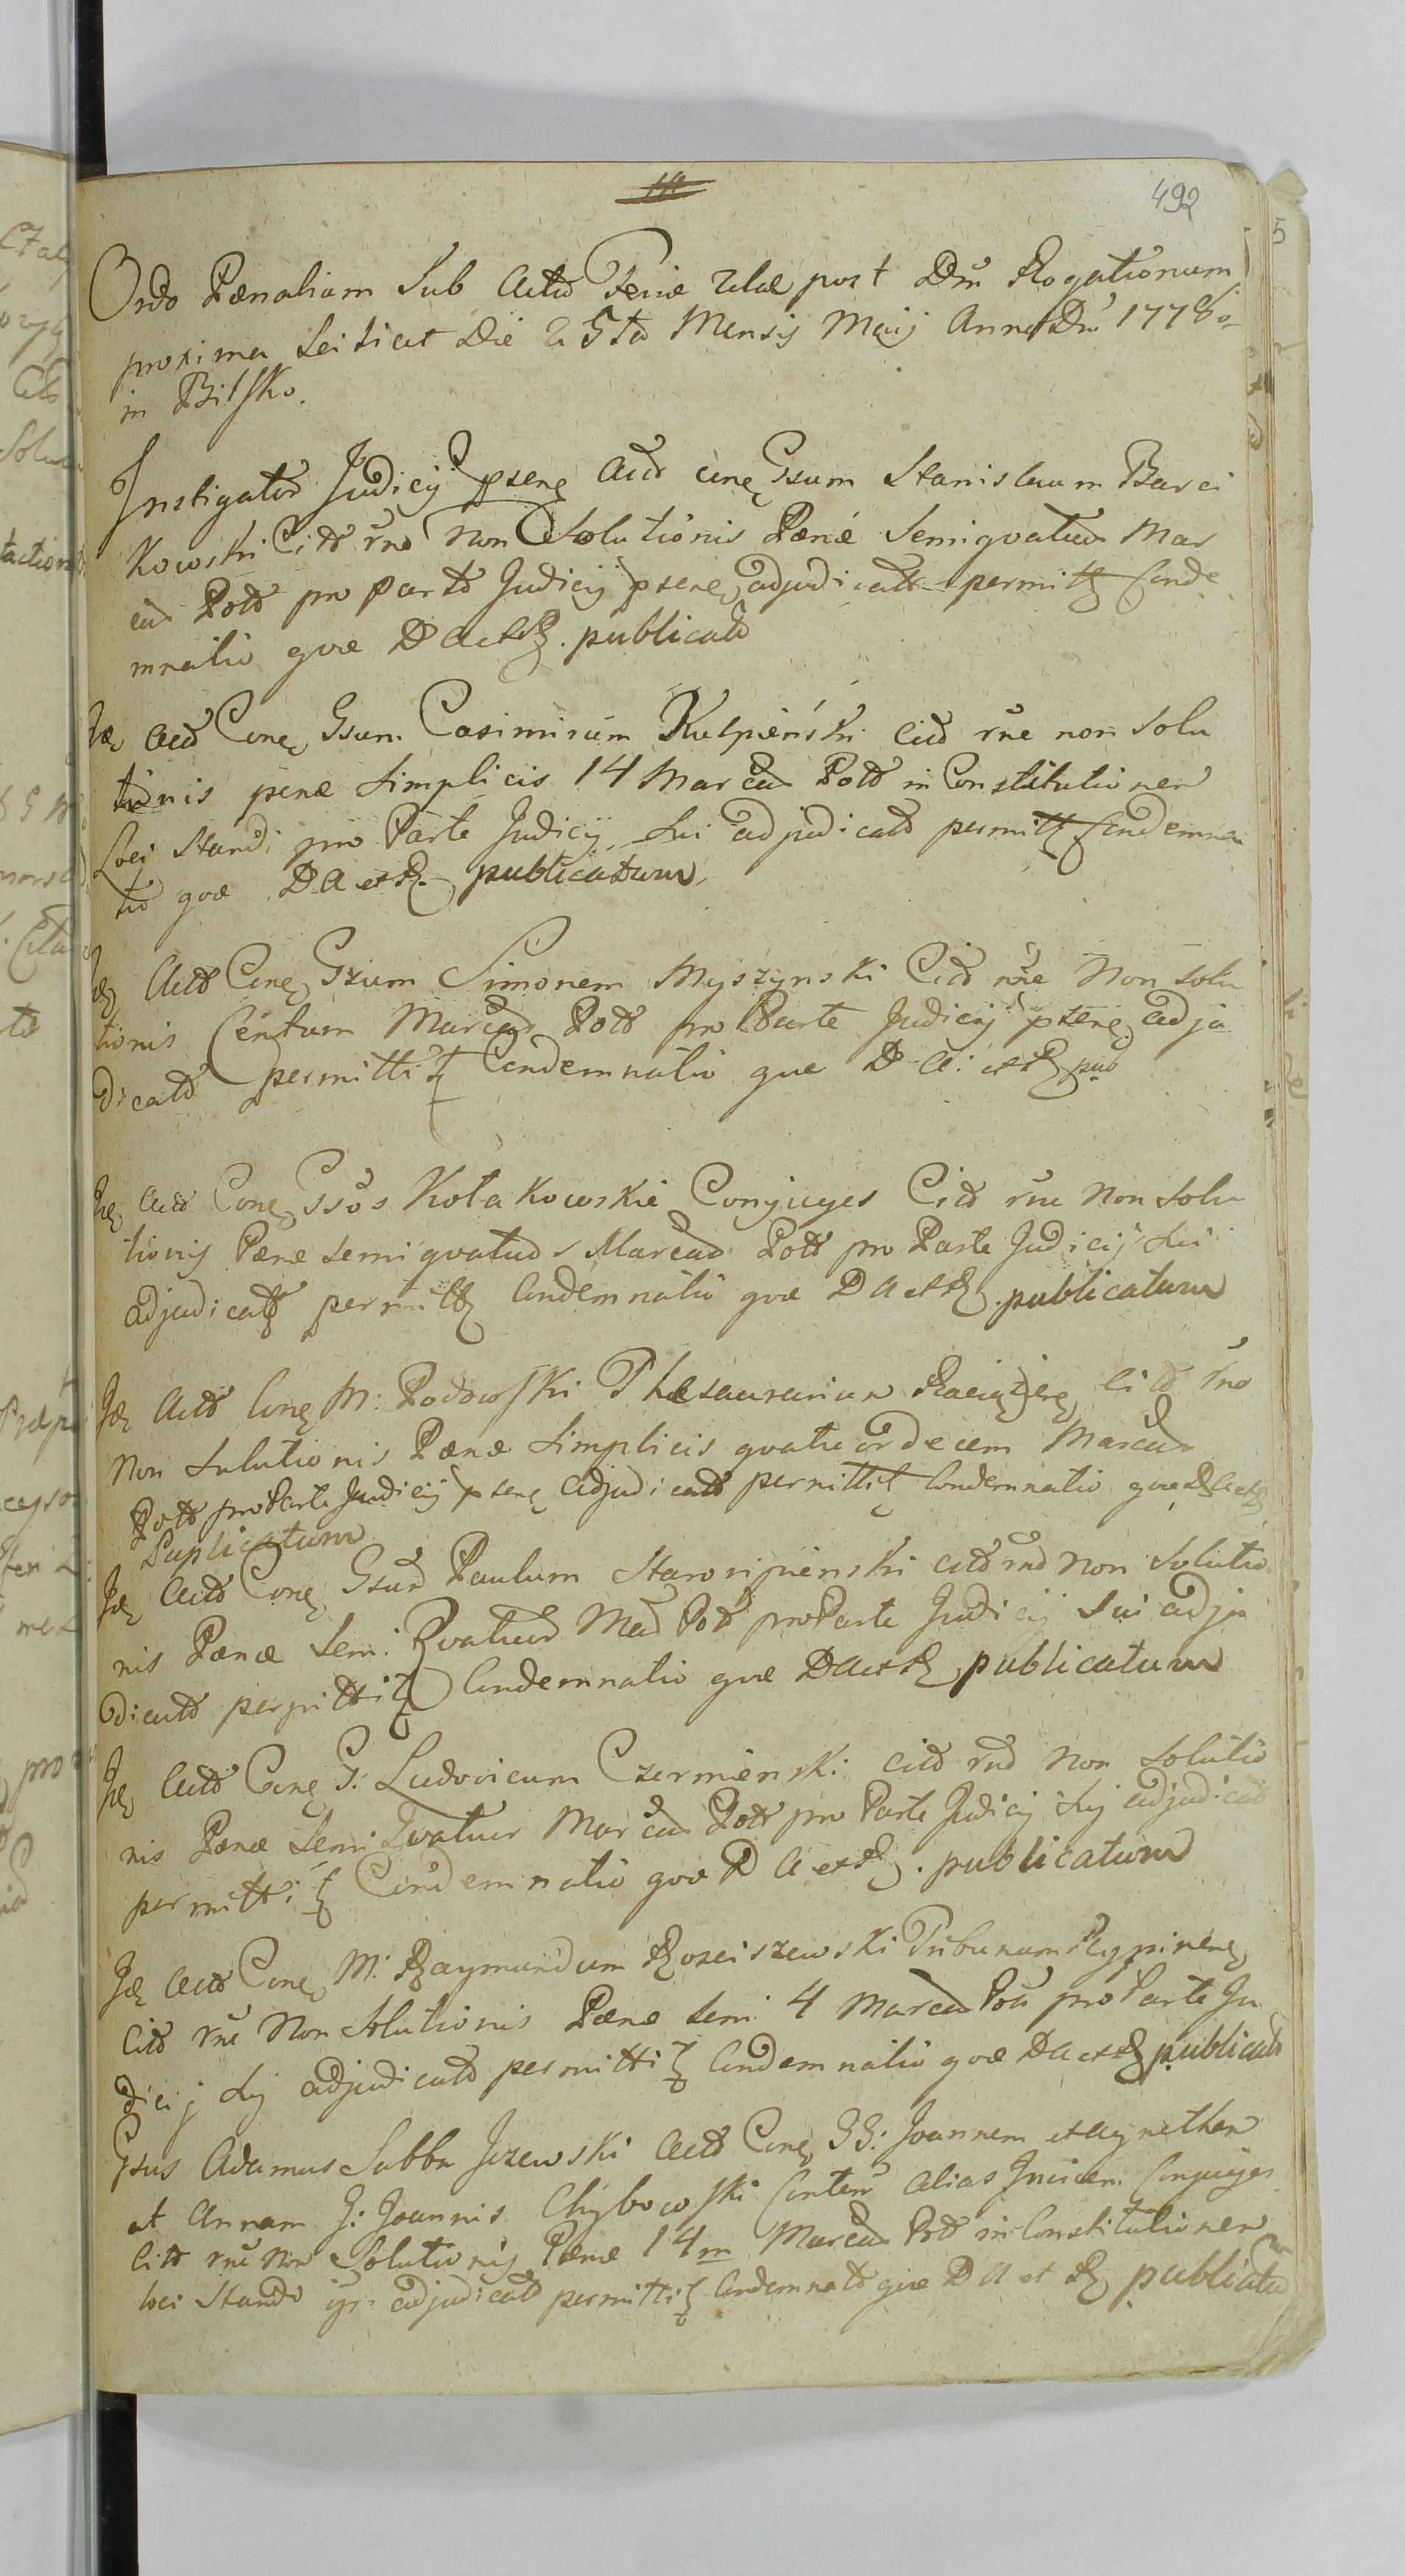 492
Ordo Pænalium Sub Actu Feriæ 2dæ post Dm̃ Rogationum
proxima Scilicet Die 25ta Mensis Maij Anno Dni 1778o
in Bilsko.
Instigator Judicij psenꝫ Actꝰ Conꝫ Gsum Stanislaum Barci
kowski Citꝰ rne Non Solutionis Pænæ Semigvatuor Mar
car Polł pro parte Judicij psenꝫ adjudicatꝰ permittꝫ Conde
mnatio qvæ D A et R. publicatꝰ
Jdꝫ Actꝰ Conꝫ Gsum Casimirum Kulpiński citꝰ rne non Solu
tionis penæ Simplicis 14 Marcar Polł in Constitutionem
Loci Standi pro Parte Judicij Sui adjudicatꝰ permittꝫ Condemna
tio qvæ D A et R. publicatum
Jdꝫ Actꝰ Conꝫ Gsum Simonem Myszynski Citꝰ rne Non Solu
tionis Centum Marcar Polł pro Parte Judicij psenꝫ adju
dicatꝰ permittitꝫ Condemnatio qvæ D A: et R pub
Jdꝫ Actꝰ Conꝫ Gsos Kołakowskie Conjuges Citꝰ rne Non Solu
tionis Pænæ Semiqvatuor Marcar Polł pro Parte Judicij Sui
adjudicatꝰ permittꝫ Condemnatio qvæ D A et R. publicatum
Jdꝫ Actꝰ Conꝫ M: Rodowski Thesaurarium Raciążꝫ Citꝰ rne
Non Solutionis Pænæ Simplicis qvatuordecem Marcar
Polł pro Parte Judicij psenꝫ Adjudicatꝰ permittitꝫ Condemnatio qvæ D A et R
Puplicatum
Jdꝫ Actꝰ Conꝫ Gsum Paulum Staroripienski citꝰ rne Non Solutio
nis Pænæ Semi Qvatuor Mar Polł pro Parte Judicij Sui adju
dicatꝰ permittitꝫ Condemnatio qvæ D A et R publicatum
Jdꝫ Actꝰ Conꝫ G: Ludovicum Czerminski citꝰ rne Non Solutio
nis Pænæ Semi Qvatuor Marcar Polł pro Parte Judicij Sij adjudicatꝰ
permittitꝫ Condemnatio qvæ D A et R. publicatum
Jdꝫ Actꝰ Conꝫ M: Raymundum Rosciszewski Tribunum Rypinenꝫ
Citꝰ rne Non Solutionis Pænæ Semi 4 Marcar Polł pro Parte Ju
dicij Sij adjudicatꝰ permittitꝫ Condemnatio qvæ D A et R publicatꝰ
Gsus Adamus Subba Jzewski Actꝰ Conꝫ GG: Joannem et Agnethem
at Annam G: Joannis Chybowski Conten alias Invicem Conjuges
Citꝰ rne Non Solutionis Pænæ 14m Marcar Polł in Constitutionem
loci Standi adjudicatꝰ permittitꝫ Condemnatꝰ qvæ D A et R publicatu